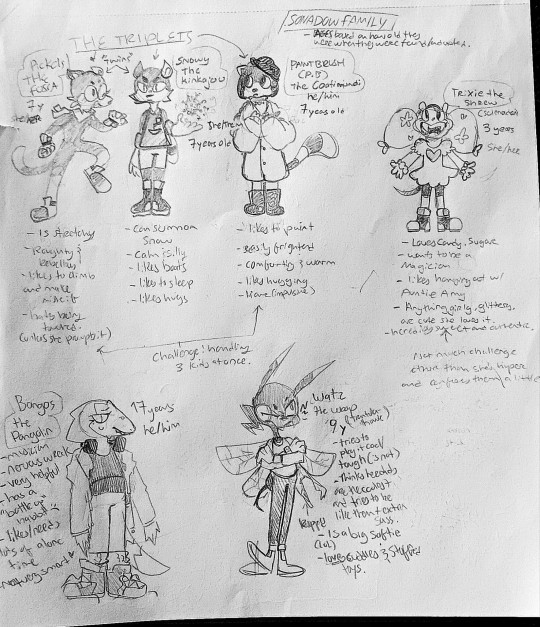 SONADOW FAMILY
- AGES based on how old they were when they were found/adopted.
THE TRIPLETS
Petals
THE
FOSSA
7y
she/her
"Twins"
- Is stretchy
- Naughty &
rebellious
- likes to climb
and make
mischief
- hates being
touched.
Snowy
the
kinkajou
She/her
7 years old
- Can summon
Snow
- Calm, silly
- likes boats
- likes to sleep
- likes hugs
PAINTBRUSH
(P.B)
the Coatimundi
he/him
7 years old
- likes to paint
- easily frightend
- comforting & warm
- likes hugging
Challenge: handling
3 kids at once.
Trixie the
Shrew
3 years
She/her
- Loves candy, Sugar
- wants to be a
Magician
- likes hanging out w/
Auntie Amy
- Anything girly, glittery,
or cute she loves it.
- Incredibly sweet and
Not much challenge
other than she's hyper
and confuses them a little
Bongos
the
Pangolin
17 years
he/him
- musician
- nervous wreck
- very helpful
- has a
- likes/needs
lots of alone
time
- very smart
Watz
the wasp
9y
- tries to
play it cool/
tough (is not)
- Thinks
are the coolest
and tries to be
like them + extra
sass.
- Is a big softie
(lol)
- loves cuddles & stuffed
toys.